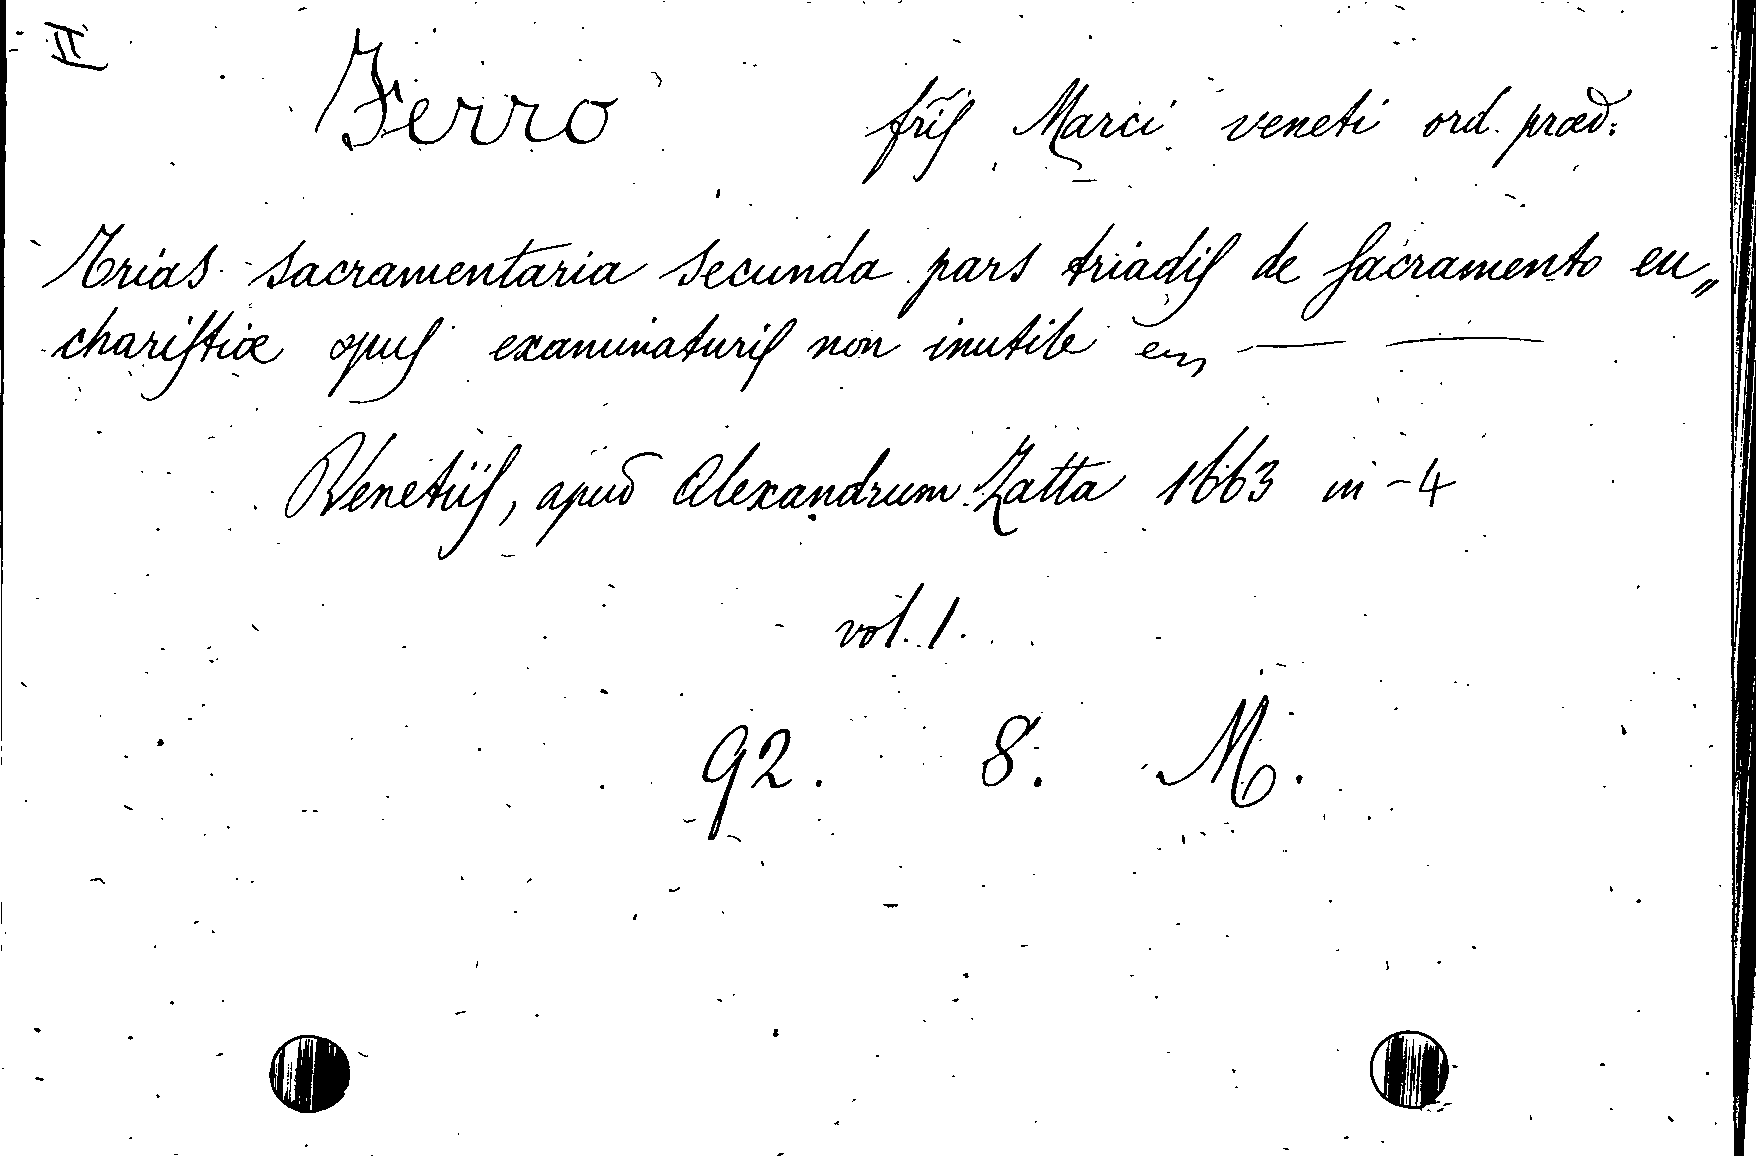 II
Ferro frĩs Marci veneti ord. præd:
Trias sacramentaria secunda pars triadis de sacramento eu„
charistiæ opus examinaturis non inutile
Venetiis, apud Alexandrum Zatta 1663 in-4
vol. 1.
92. 8. M.